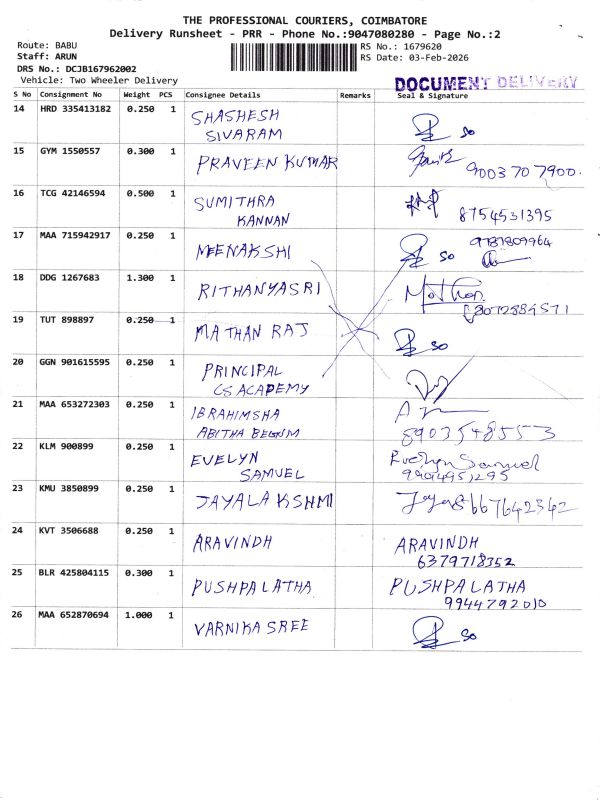 THE PROFESSIONAL COURIERS, COIMBATORE
Delivery Runsheet - PRR - Phone No.:9047080280 - Page No.:2
Route: BABU
Staff: ARUN
DRS No.: DCJB167962002
Vehicle: Two Wheeler Delivery
RS No.: 1679620
RS Date: 03-Feb-2026
DOCUMENT DELIVERY
S No Consignment No Weight PCS Consignee Details Remarks Seal & Signature
14 HRD 335413182 0.250 1 SHASHESH
SIVARAM SO
15 GYM 1550557 0.300 1 PRAVEEN KUMAR 9003707900.
16 TCG 42146594 0.500 1 SUMITHRA
KANNAN 8754531395
17 MAA 715942917 0.250 1 MEENAKSHI SO
18 DDG 1267683 1.300 1 RITHANYASRI
19 TUT 898897 0.250 1 MATHAN RAJ SO
20 GGN 901615595 0.250 1 PRINCIPAL
CS ACADEMY
21 MAA 653272303 0.250 1 IBRAHIMSHA
ABITHA BEGUM 8903548553
22 KLM 900899 0.250 1 EVELYN Evelyn Samuel
SAMUEL
23 KMU 3850899 0.250 1 JAYALAKSHMI 8667642342
24 KVT 3506688 0.250 1 ARAVINDH ARAVINDH
6379718352
25 BLR 425804115 0.300 1 PUSHPALATHA PUSHPALATHA
9944792010
26 MAA 652870694 1.000 1 VARNIKA SREE SO